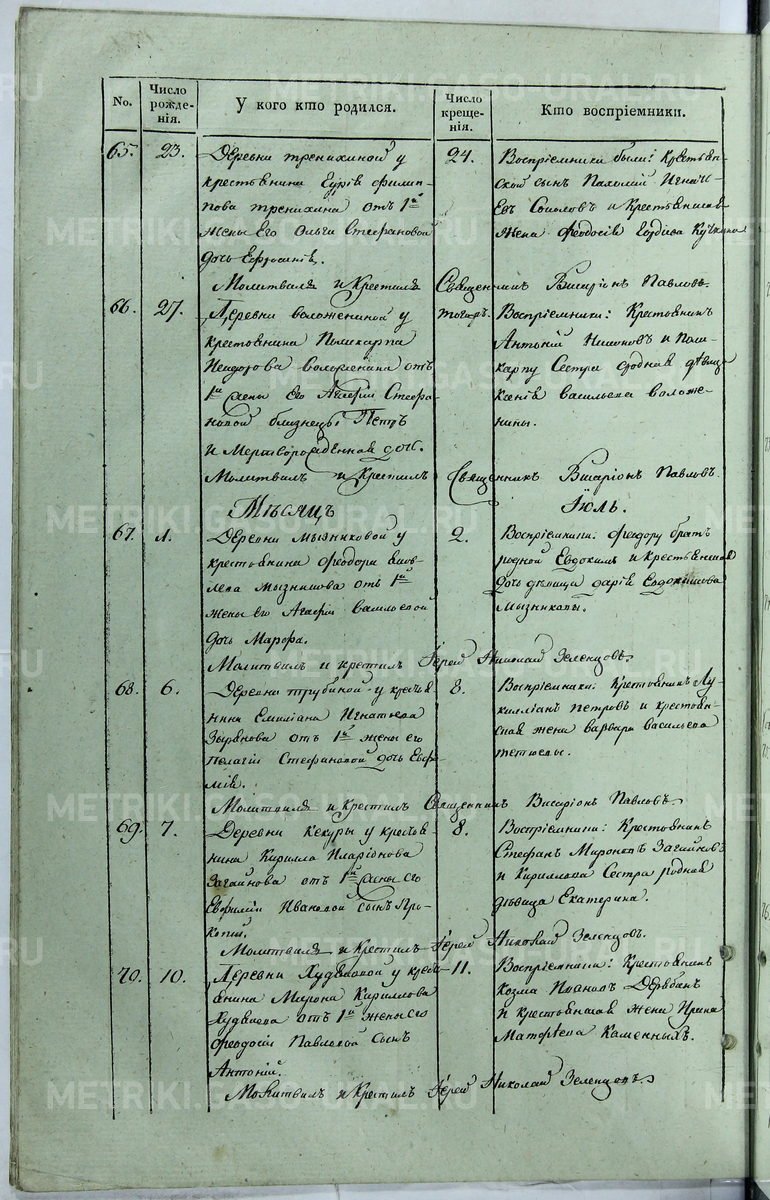 No.
Число рожде-
нія.
У кого кто родился.
Число креще-
нія.
Кто воспріемники.
65. 23.
Деревни Тренихиной у
крестьянина
Филип-
пова Тренихина отъ 1й
жены его Ольги Стефановой
дочь Ефросинія.
24.
Воспріемники были: Крестьян-
ской сынъ Пахомий Игнать-
евъ и Крестьянская
жена Феодосія
Молитвилъ и Крестилъ Священникъ Висаріонъ Павловъ.
66. 27.
Деревни Воложениной у
крестьянина Поликарпа
Воложенина отъ
1й жены его Агафіи Стефа-
новой близнецы Петръ
и Мертворожденная дочь.
тогоже.
Воспріемники: Крестьянинъ
Антоній и Поли-
карпу Сестра родная дѣвица
Ксенія Васильева Воложе-
нины.
Молитвилъ и Крестилъ Священникъ Висаріонъ Павловъ.
Мѣсяцъ Іюль.
67. 1.
Деревни Мызниковой у
крестьянина Феодора Яков-
лева Мызникова отъ 1й
жены его Агафіи Васильевой
дочь Марфа.
2.
Воспріемники: Феодору братъ
родной Евдокимъ и Крестьянская
дочь дѣвица Дарія Евдокимова
Мызниковы.
Молитвилъ и крестилъ Іерей Николай Зеленцовъ.
68. 6.
Деревни Трубиной у крестья-
нина Емиліана Игнатьева
Зырянова отъ 1й жены его
Пелагіи Стефановой дочь Евфи-
мія.
8.
Воспріемники: Крестьянинъ Лу-
килліанъ Петровъ и крестьян-
ская жена Варвара Васильева
Молитвилъ и Крестилъ Священникъ Висаріонъ Павловъ.
69. 7.
Деревни Кекуры у крестья-
нина Кирилла Иларіонова
Загайнова отъ 1й жены его
Евфиміи Ивановой сынъ Про-
копій.
8.
Воспріемники: Крестьянинъ
Стефанъ Мироновъ Загайновъ
и Кириллова Сестра родная
дѣвица Екатерина.
Молитвилъ и Крестилъ Іерей Николай Зеленцовъ.
70. 10.
Деревни Худяковой у кресть-
янина Мирона Кириллова
Худякова отъ 1й жены его
Феодосіи Павловой сынъ
Антоній.
11.
Воспріемники: Крестьянинъ
Козма Ивановъ
и крестьянская жена Ирина
Матфѣева Каменныхъ.
Молитвилъ и Крестилъ Іерей Николай Зеленцовъ.
METRIKI.GASO-URAL.RU